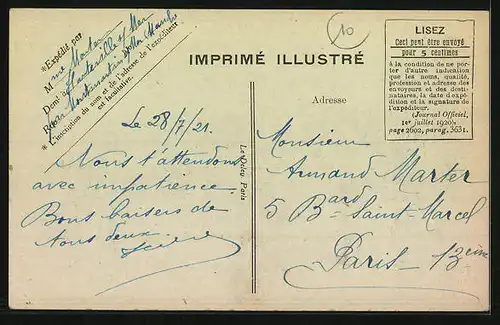 *Expédié par
M me Marter
Hauteville s/ Mer
par Montmartin s/ Mer Manche
* L'inscription du nom et de l'adresse de l'expéditeur
est facultative.
10
IMPRIMÉ ILLUSTRÉ
LISEZ
Ceci peut être envoyé
pour 5 centimes
à la condition de ne por-
ter d'autre indication
que les noms, qualité,
profession et adresse des
envoyeurs et des desti-
nataires, la date d'expé-
dition et la signature de
l'expéditeur.
(Journal Officiel,
1er juillet 1920),
page 2602, parag. 3631.
Le 28/7/21.
Nous t'attendons
avec impatience
Bons baisers de
tous deux
Le Deley, Paris
Adresse
Monsieur
Armand Marter
5 Bard Saint-Marcel
Paris - 13eme